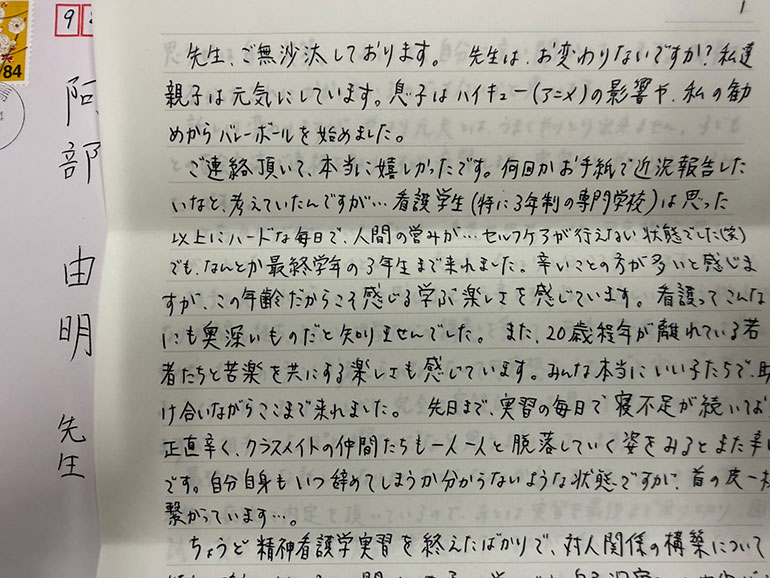 1
9
84
阿部 由明 先生
先生、ご無沙汰しております。 先生は、お変わりないですか？私達
親子は元気にしています。息子はハイキュー(アニメ)の影響や、私の勧
めからバレーボールを始めました。
ご連絡頂いて、本当に嬉しかったです。何回かお手紙で近況報告した
いなと、考えていたんですが…看護学生(特に3年制の専門学校)は思った
以上にハードな毎日で、人間の営みが…セルフケアが行えない状態でした(笑)
でも、なんとか最終学年の3年生まで来れました。辛いことの方が多いと感じま
すが、この年齢だからこそ感じる学ぶ楽しさを感じています。看護ってこんな
にも奥深いものだと知りませんでした。また、20歳程年が離れている若
者たちと苦楽を共にする楽しさも感じています。みんな本当にいい子たちで、助
け合いながらここまで来れました。 先日まで、実習の毎日で寝不足が続いてお
正直辛く、クラスメイトの仲間たちも一人一人と脱落していく姿をみるとまた辛い
です。自分自身もいつ辞めてしまうか分からないような状態ですが、首の皮一枚
繋がっています…。
ちょうど精神看護学実習を終えたばかりで、対人関係の構築について